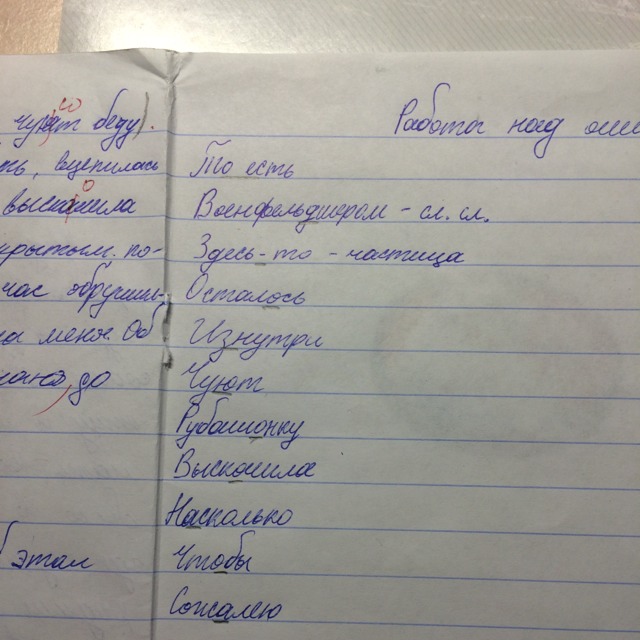 чуют беду).
вцепилась
выскочила
крытым. по-
час обрушы-
на меня. Об
до
этом
Работа над оши
То есть
Военфельдшером - сл. сл.
Здесь-то - частица
Осталось
Изнутри
Чуют
Рубашонку
Выскочила
Насколько
Чтобы
Сожалею